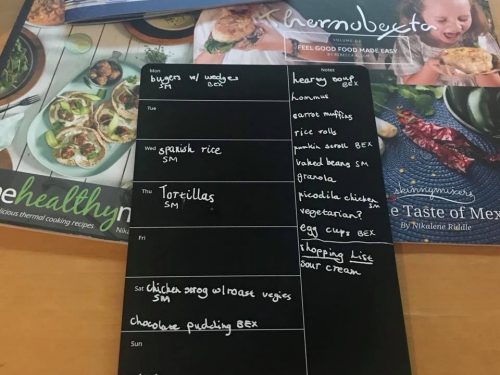 Thermobexta
VOLUME
FEEL GOOD FOOD MADE EASY
Mon
burgers w/ wedges
SM BEX
Tue
Wed
spanish rice
SM
Thu
Tortillas
SM
Fri
Sat
chicken strog w/roast vegies
SM
chocolate pudding BEX
Sun
Notes
hearty soup
BEX
hommus
carrot muffins
rice rolls
pumkin scroll BEX
baked beans SM
granola
picadilla chicken
SM
vegetarian?
egg cups BEX
shopping List
sour cream
healthy
delicious thermal cooking recipes.
skinnymixers
The Taste of Mex
By Nikalene Riddle